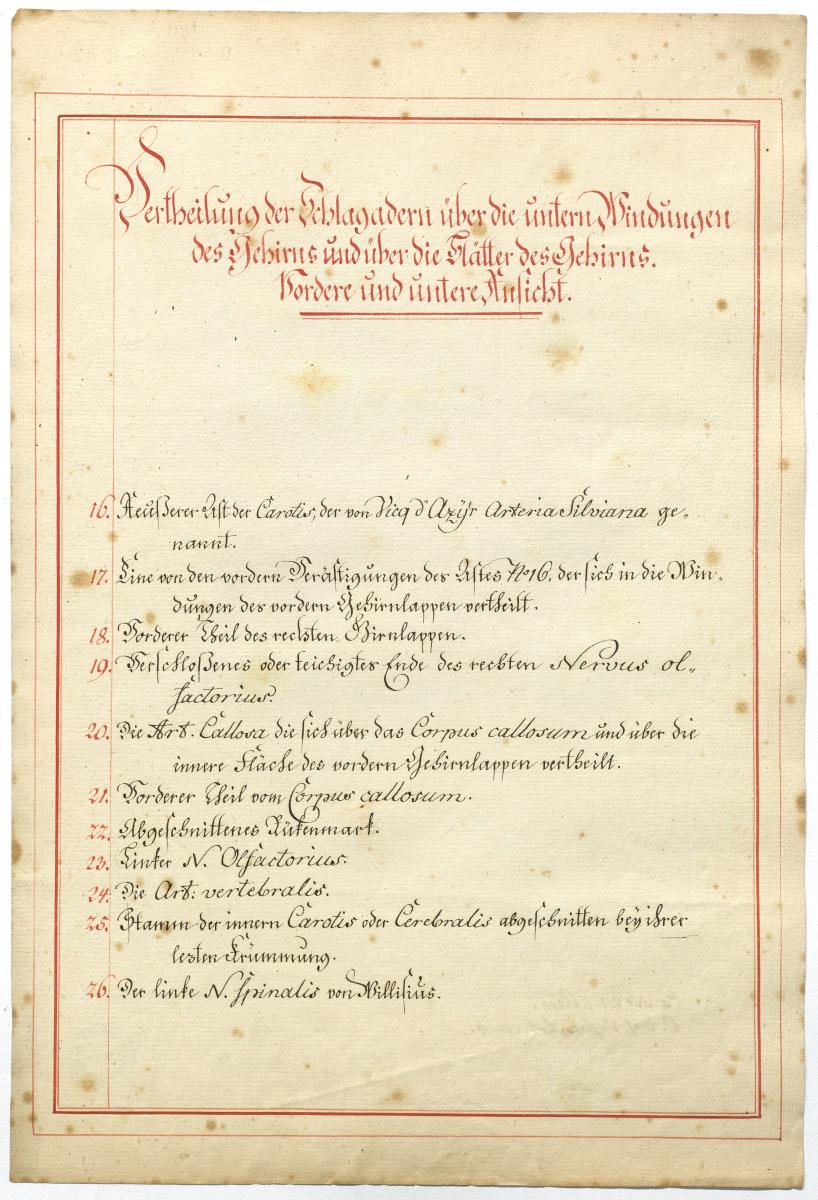 Vertheilung der Schlagadern über die untern Windungen
des Gehirns und über die Blätter des Gehirns.
Vordere und untere Ansicht.
16. Aeußerer Ast der Carotis, der von Vicq d'Azÿr Arteria Silviana ge-
nannt.
17. Eine von den vordern Verästigungen des Astes No 16, der sich in die Win-
dungen des vordern Gehirnlappen vertheilt.
18. Vorderer Theil des rechten Hirnlappen.
19. Verschloßenes oder teichigtes Ende des rechten Nervus ol-
factorius.
20. Die Art. Callosa die sich über das Corpus callosum und über die
innere Fläche des vordern Gehirnlappen vertheilt.
21. Vorderer Theil vom Corpus callosum.
22. Abgeschnittenes Rükenmark.
23. Linker N. Olfactorius.
24. Die Art: vertebralis.
25. Stamm der innern Carotis oder Cerebralis abgeschnitten beÿ ihrer
lezten Krümmung.
26. Der linke N. Spinalis von Willisius.